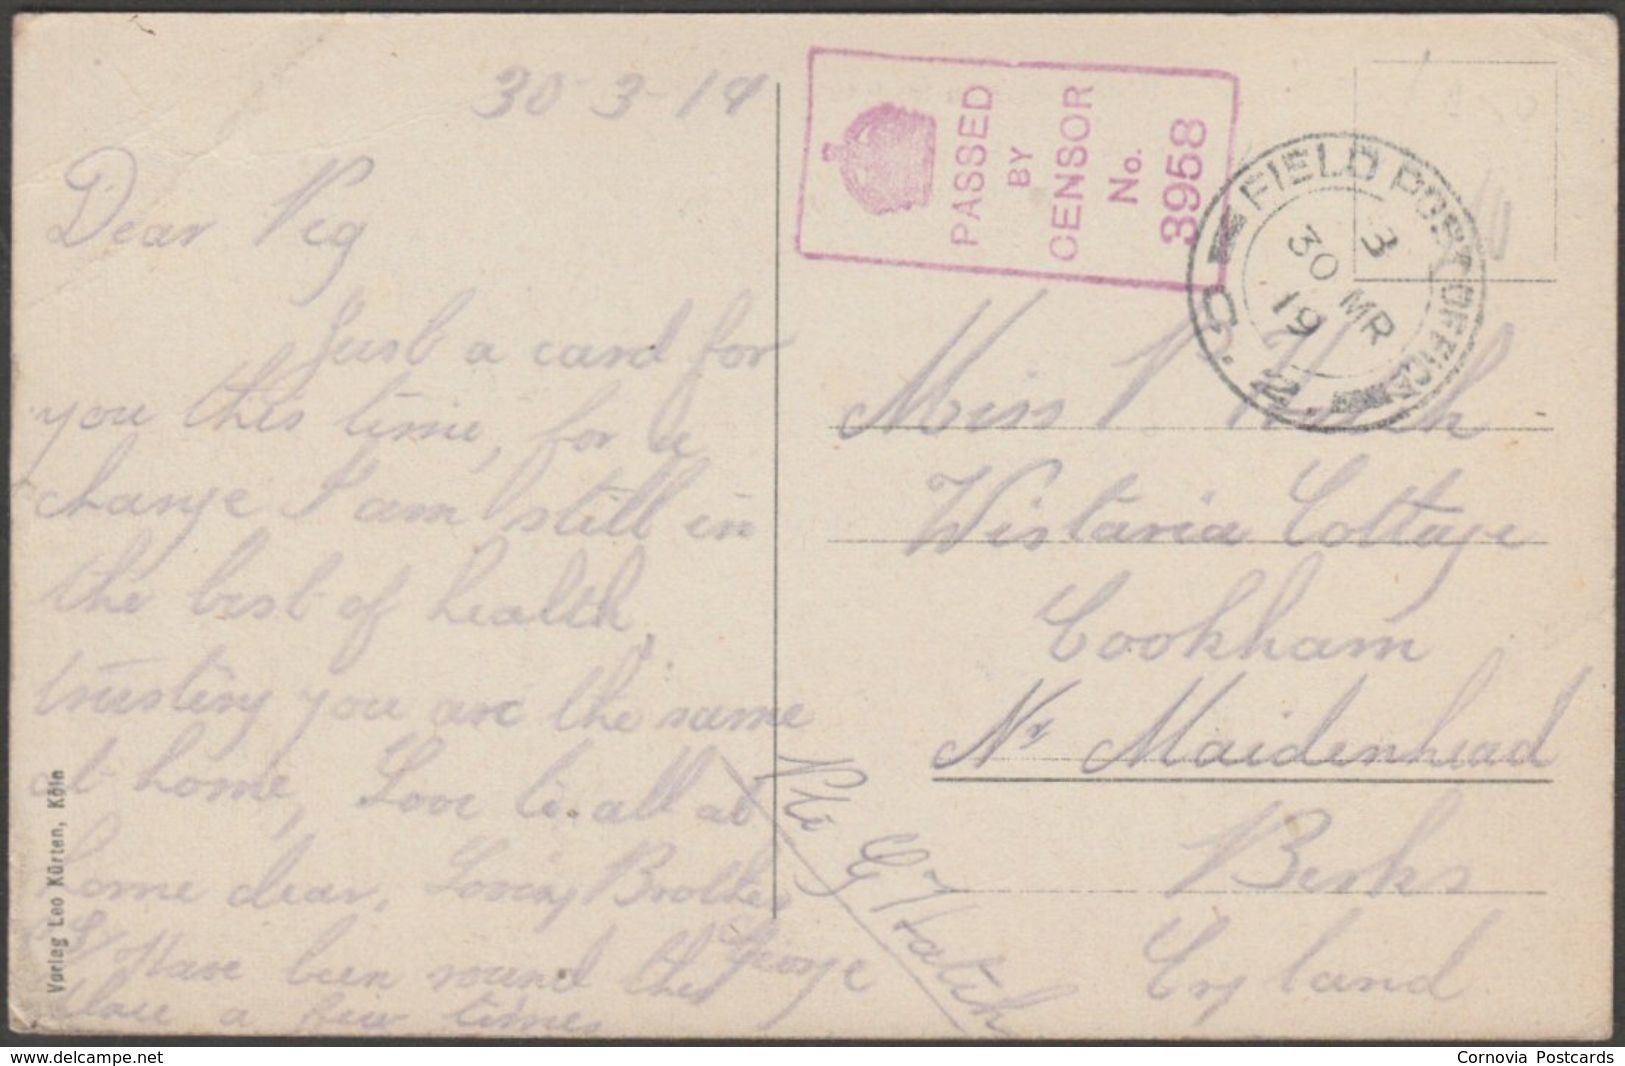 30-3-19
Dear Peg
Just a card for
you this time, for a
change I am still in
the best of health,
trusting you are the same
at home, Love to all at
home dear, Loving Brother
George
Have been round this
place a few times
Pte G Hatch
PASSED
BY
CENSOR
No.
3958
FIELD POST OFFICE
3
30 MR
19
Miss P. Hatch
Wistaria Cottage
Cookham
Nr Maidenhead
Berks
England
Verlag Leo Kürten, Köln
Cornovia Postcards